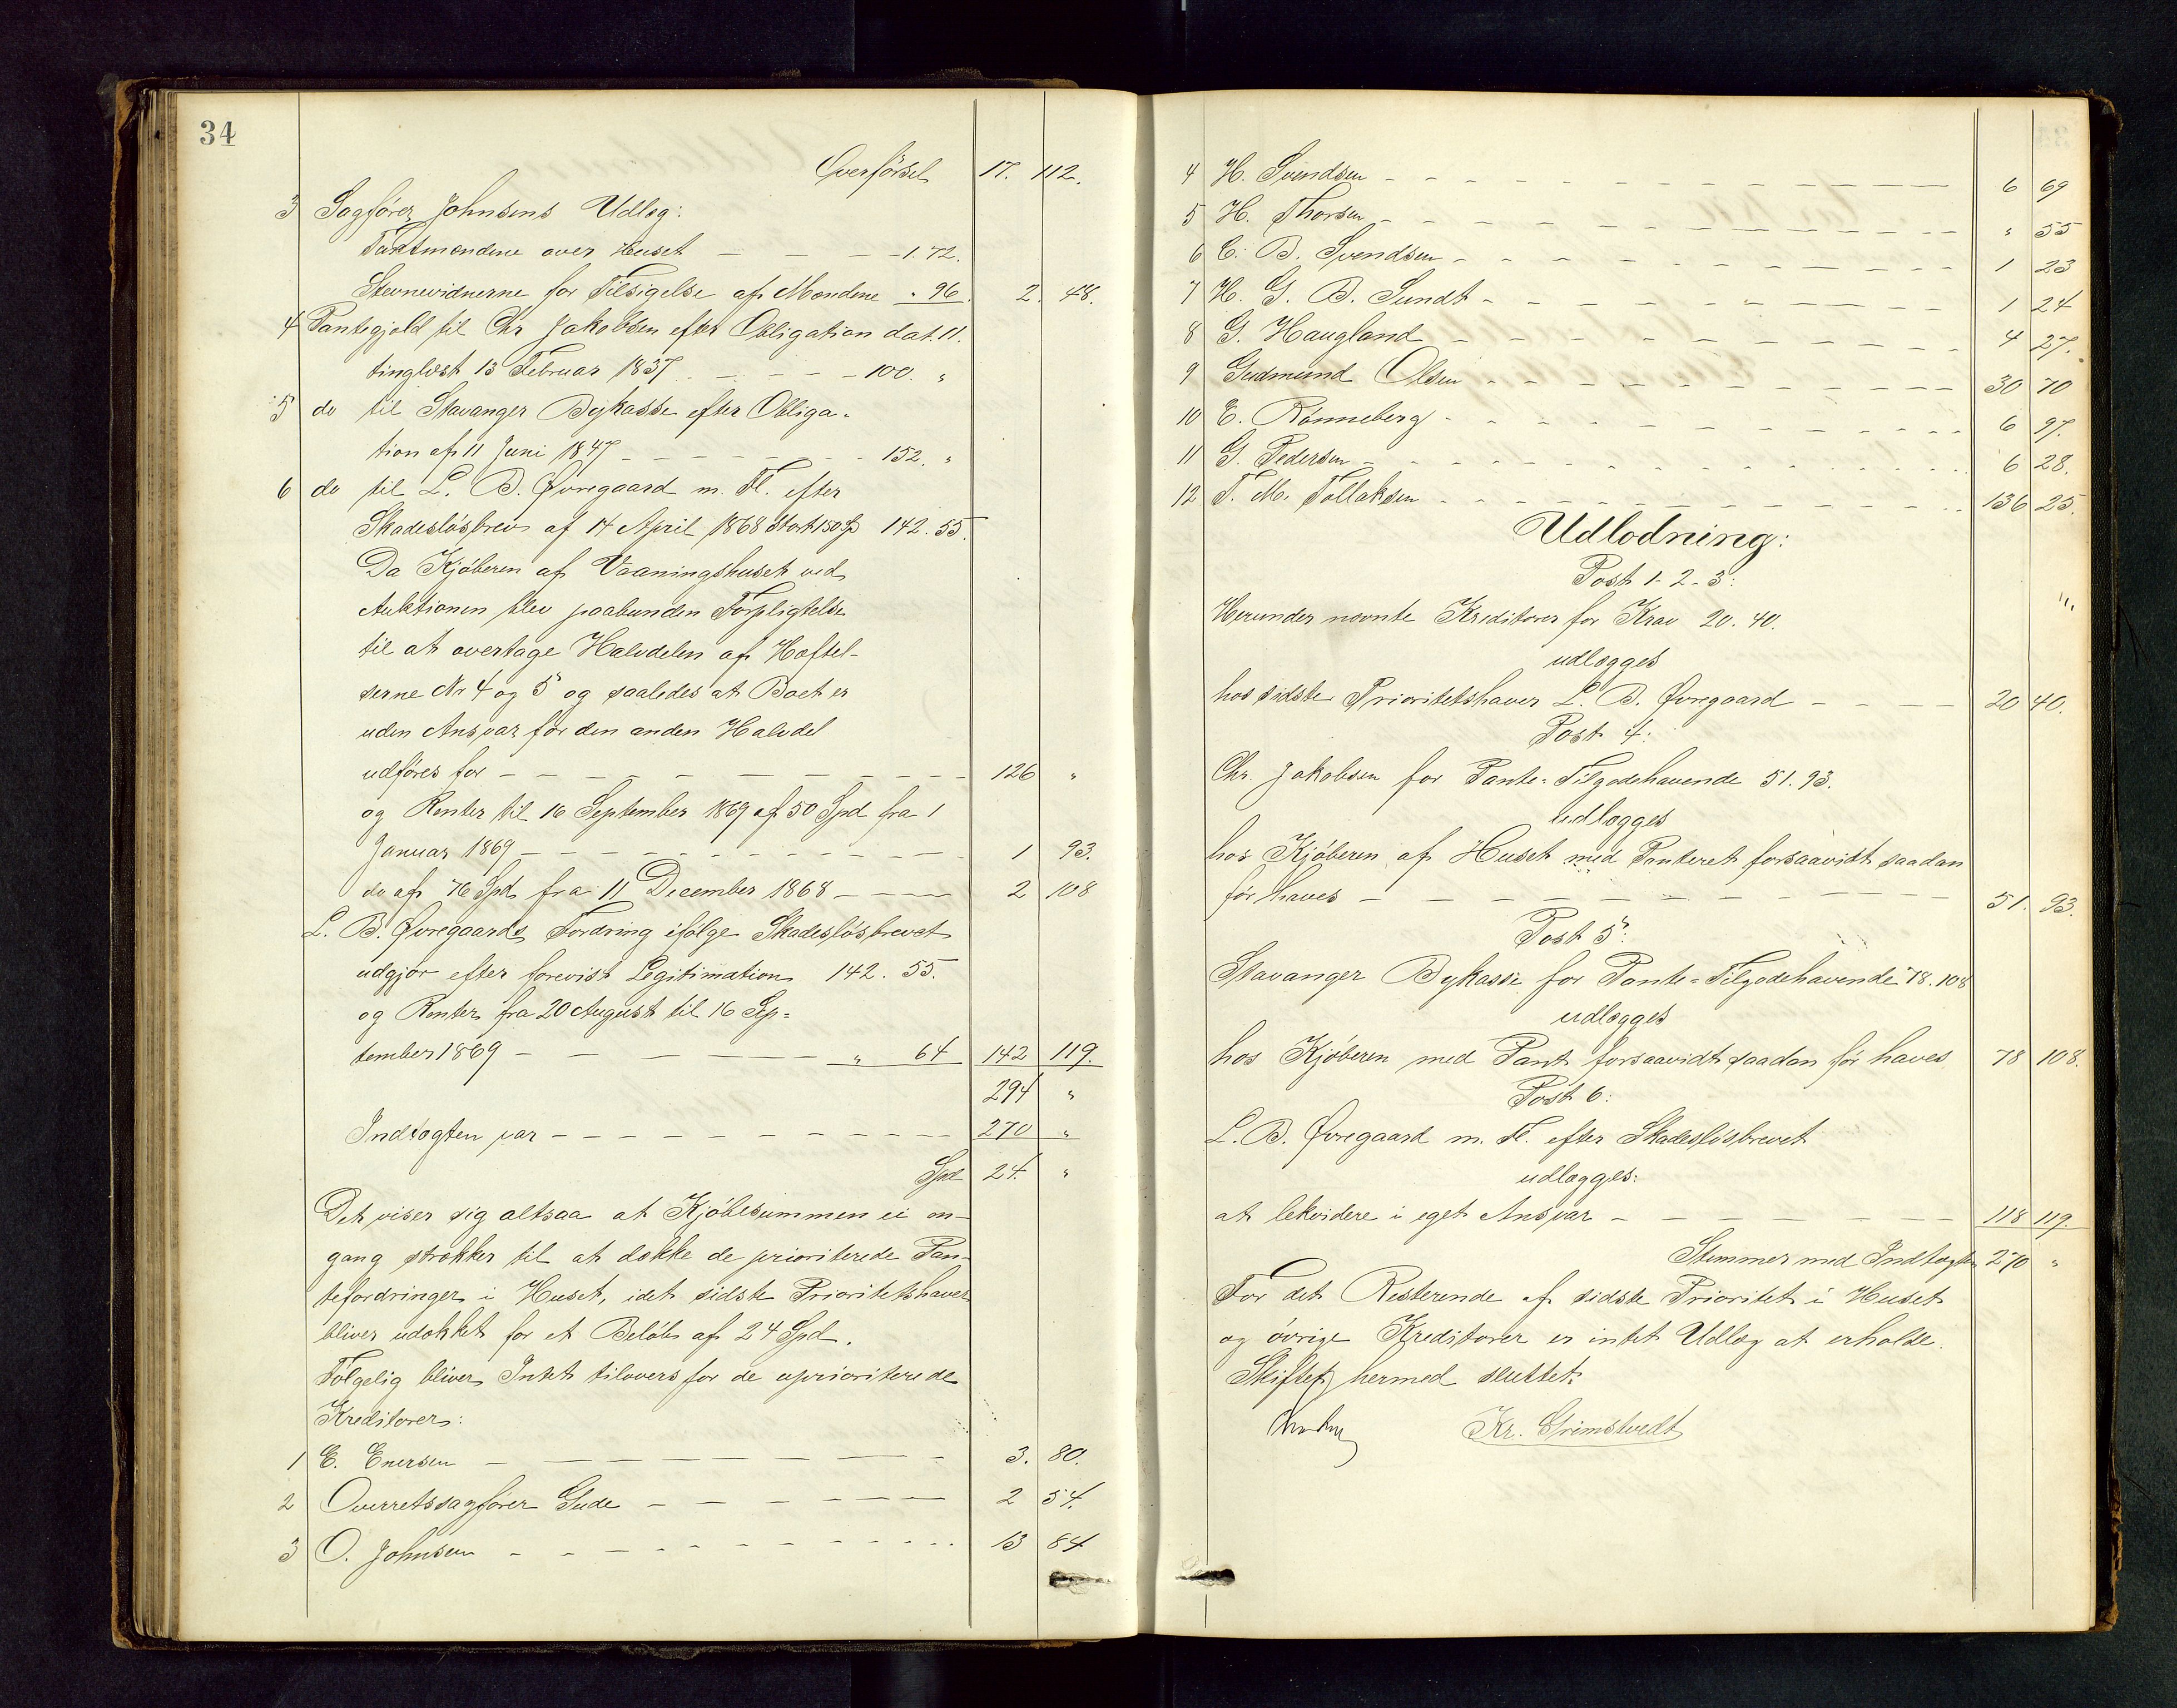 34
Overförsel 17. 112.
3 Sagfører Johnsens Udlæg:
Taxtmændene over Huset - - - 1.72.
Stevnevidnerne for Tilsigelse af Mændene " 96. 2. 48.
4 Pantegjæld til Chr Jakobsen efter Obligation dat. 11.
tinglæst 13 Februar 1837 - - - - 100. "
5 do til Stavanger Bykasse efter Obliga-
tion af 11 Juni 1847 - - - - - - - 152. "
6 do til L. B. Øvregaard m. Fl. efter
Skadesløsbrev af 14 April 1868 Stort 150 Sp 142. 55.
Da Kjøberen af Vaaningshuset ved
Auktionen blev paabunden Forpligtelse
til at overtage Halvdelen af Hæftel-
serne No 4 og 5 og saaledes at Boet er
uden Ansvar for den anden Halvdel
udføres for - - - - - - - - - - 126 "
og Renter til 16 September 1869 af 50 Spd fra 1
Januar 1869 - - - - - - - - - - 1 93.
do af 76 Spd fra 11 December 1868 - - - 2 108
L. B. Øvregaards Fordring ifølge Skadesløsbrevet
udgjør efter forevist Legitimation 142. 55.
og Renter fra 20 August til 16 Sep-
tember 1869 - - - - - " 64 142 119.
294 "
Indtægten var - - - - - - - - - - 270 "
Spd 24. "
Det viser sig altsaa at Kjøbesummen ei en-
gang strækker til at dække de prioriterede Pan-
tefordringer i Huset, idet sidste Prioritetshaver
bliver udækket for et Beløb af 24 Spd.
Følgelig bliver Intet tilovers for de uprioriterede
Kreditorer:
1 E. Enersen - - - - - - - - 3. 80.
2 Overretssagfører Gude - - - - - - 2 54.
3 O. Johnsen - - - - - - - - - - - 13 84
4 H. Svendsen - - - - - - - - - - - 6 69
5 H. Thorsen - - - - - - - - - - - " 55
6 C. B. Svendsen - - - - - - - - - - 1 23
7 H. G. B. Sundt - - - - - - - - - - 1 24
8 G. Haugland - - - - - - - - - - 4 27.
9 Gudmund Olsen - - - - - - - - - - 30 70
10 E. Rønneberg - - - - - - - - - - 6 97.
11 G. Pedersen - - - - - - - - - - - 6 28.
12 T. M. Tollaksen - - - - - - - - - - 136 25.
Udlodning:
Post 1-2-3:
Herunder nævnte Kreditorer for Krav 20. 40.
udlægges
hos sidste Prioritetshaver L. B. Øvregaard - - - - 20 40.
Post 4:
Chr. Jakobsen for Pante-Tilgodehavende 51. 93.
udlægges
hos Kjøberen af Huset med Panteret forsaavidt saadan
før haves - - - - - - - - - - 51. 93.
Post 5:
Stavanger Bykasse for Pante-Tilgodehavende 78. 108
udlægges
hos Kjøberen med Pant forsaavidt saadan før haves 78 108.
Post 6:
L. B. Øvregaard m. Fl. efter Skadesløsbrevet
udlægges:
at lekvidere i eget Ansvar - - - - - - - 118 119.
Stemmer med Indtægten 270 "
For det Resterende af sidste Prioritet i Huset
og øvrige Kreditorer er intet Udlæg at erholde.
Skiftet hermed sluttet.
Kr. Grimstvedt